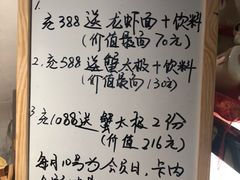 1.
充388送龙虾面+饮料
(价值最高70元)
2.充588送蟹太极+饮料
(价值最高130元)
3充1088送蟹太极2份
(价值216元)
每月10号为会员日,卡内